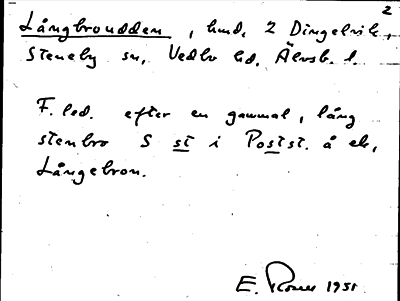 2
Långbroudden, hmd. 2 Dingelvik,
Steneby sn, Vedbo hd. Älvsb. l.
F. led. efter en gammal, lång
stenbro S st i Postst. å ek,
Långebron.
E. 1951